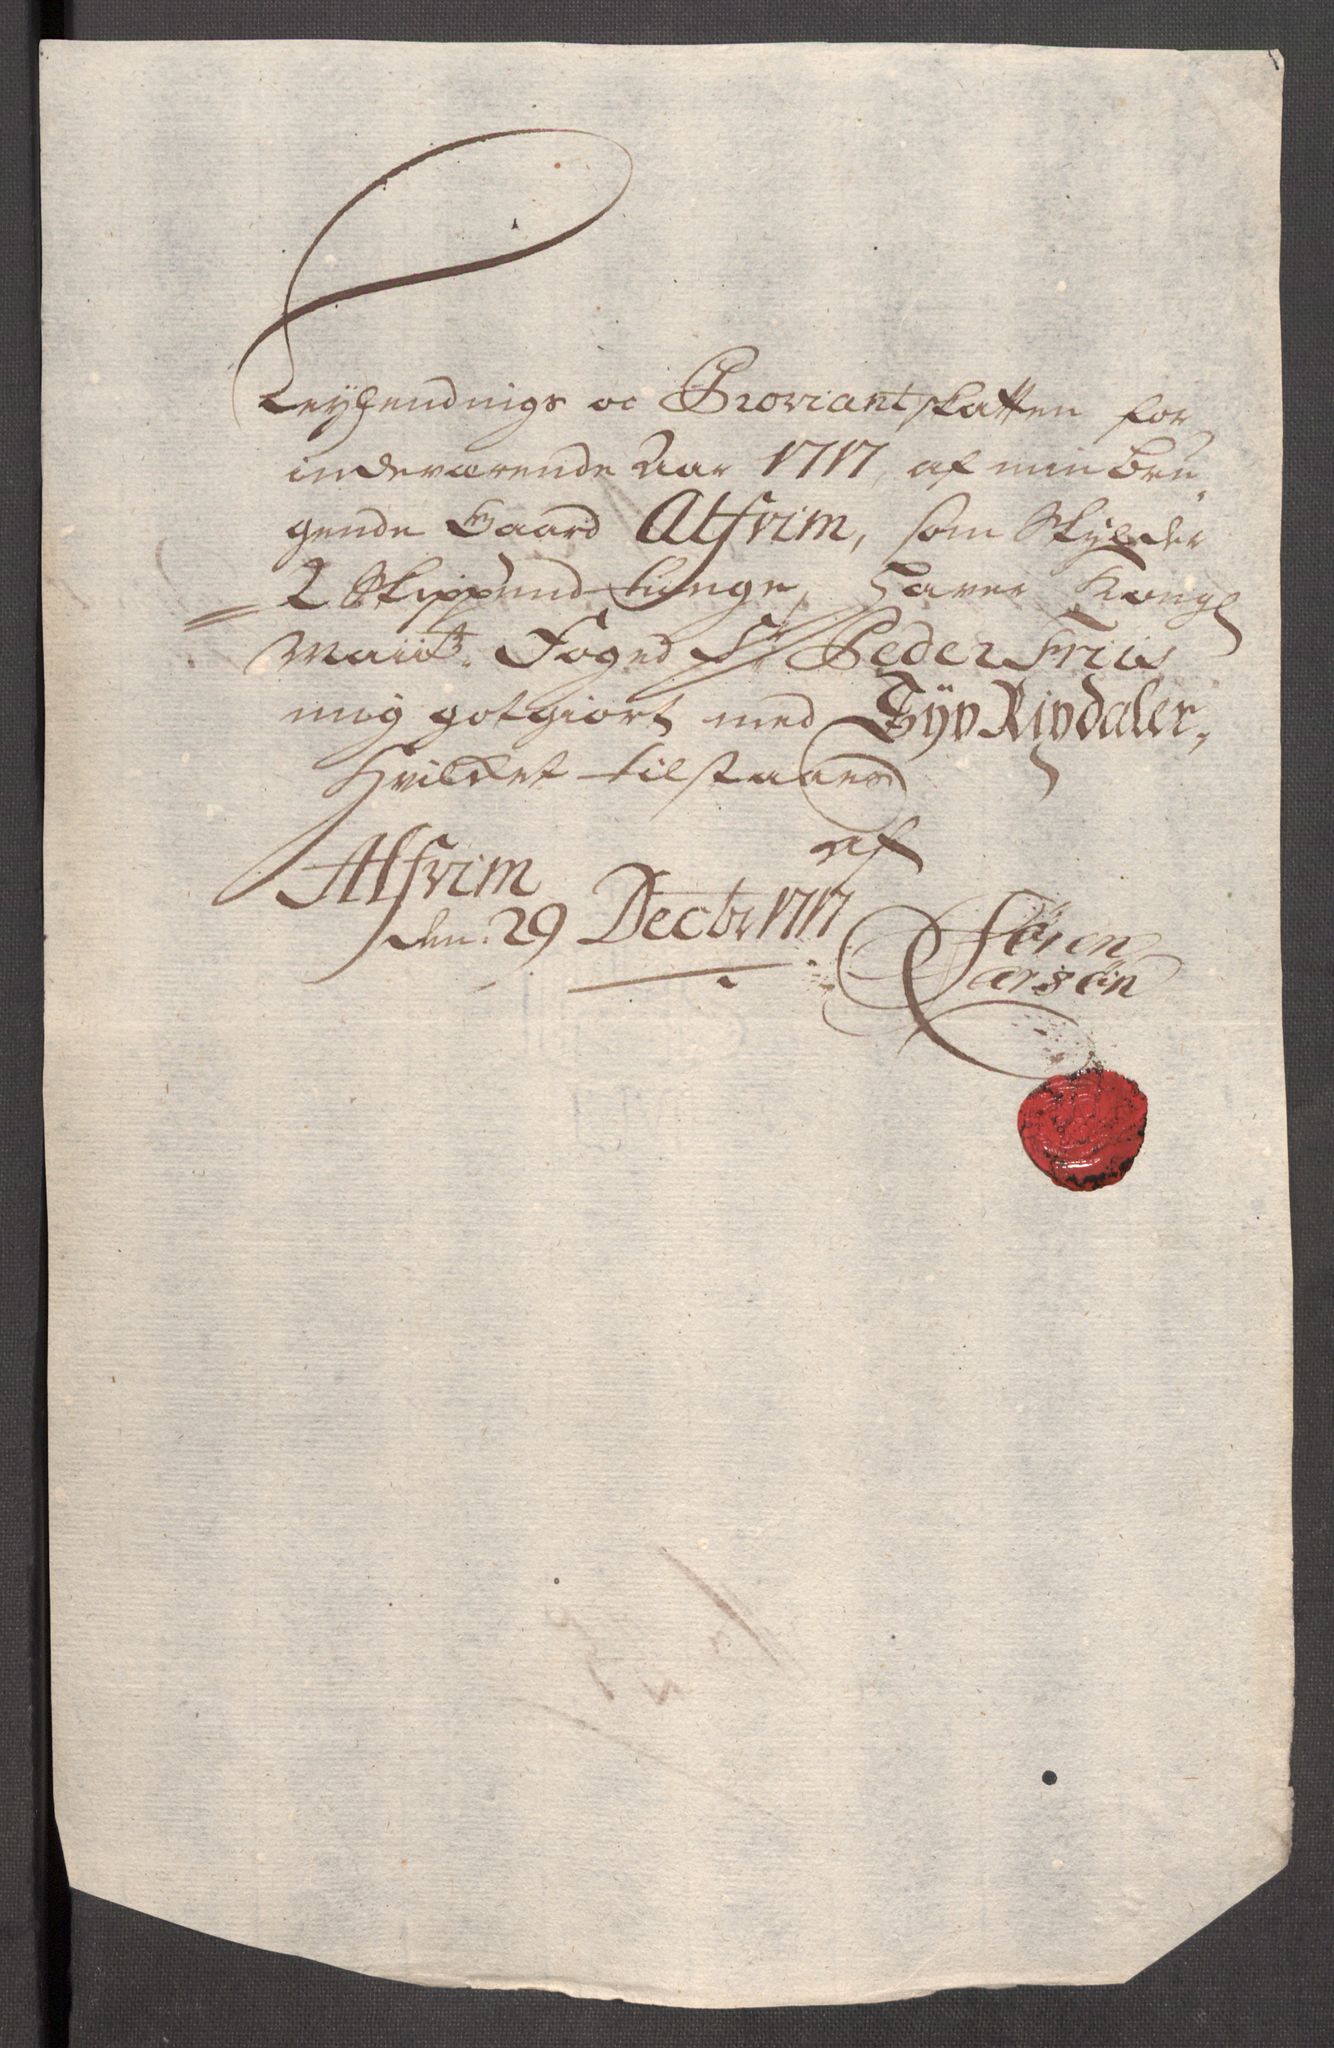 Leylendnigs oc Proviantskatten for
indeværende Aar 1717, af min bru„
gende Gaard Alfrim, som Skylder
2 Skippund tunge, haver Kongl
Maiits. Foged Sr Peder Friis
mig gotgiort med Tÿv Rixdaler,
Hvilket tilstaaes
af
Alfrim
den. 29 Decbr 1717
Sören
Larsön